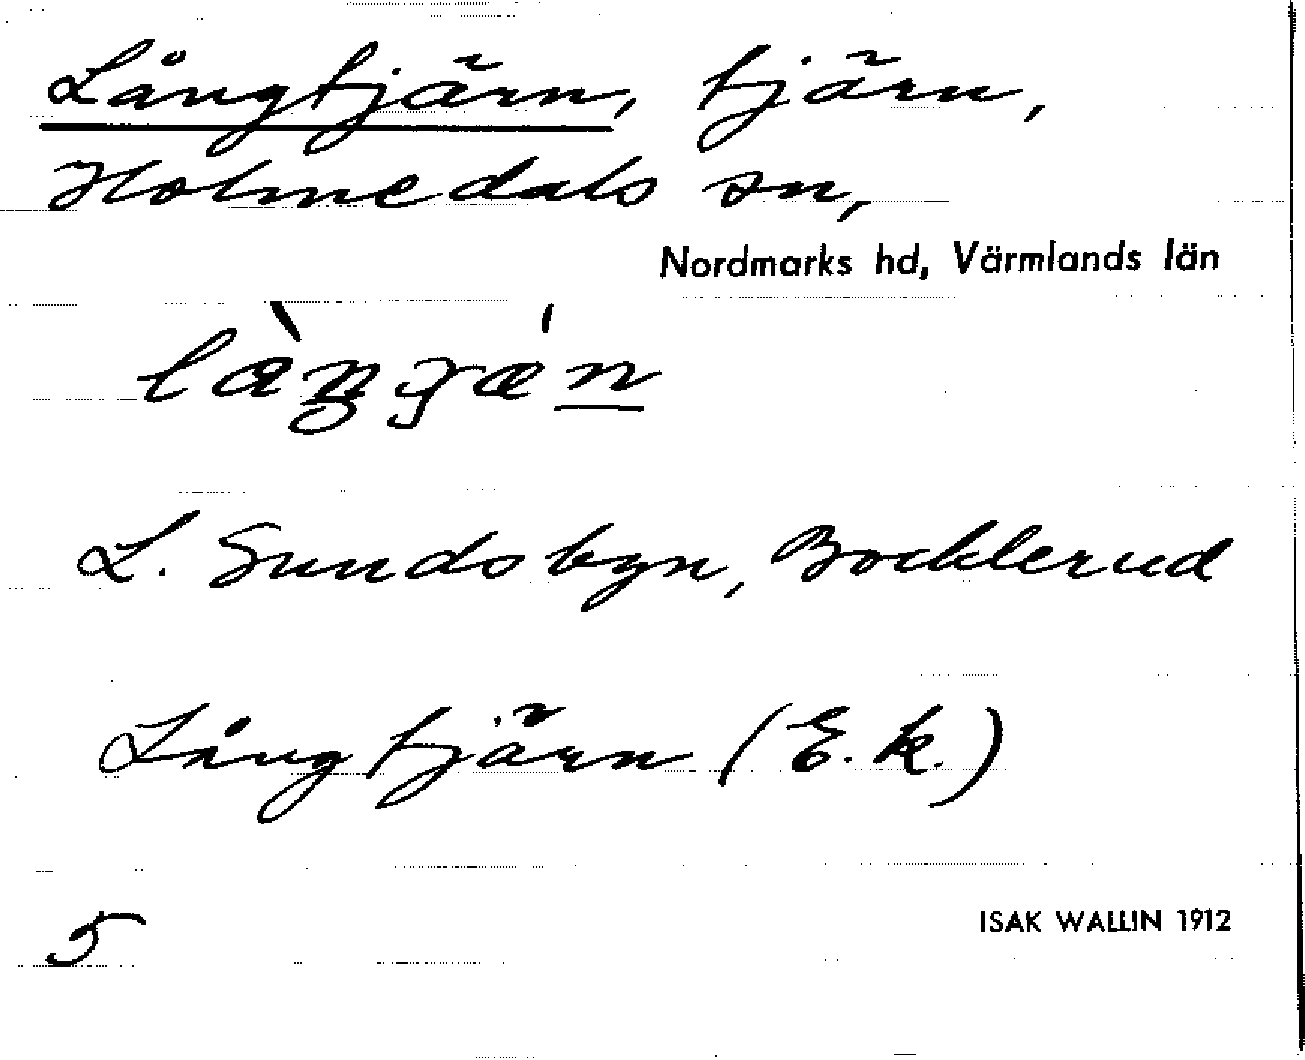 Långtjärn, tjärn,
Holmedals sn,
Nordmarks hd, Värmlands län
L. Sundsbyn, Bocklerud
Långtjärn (E.k.)
5
ISAK WALLIN 1912